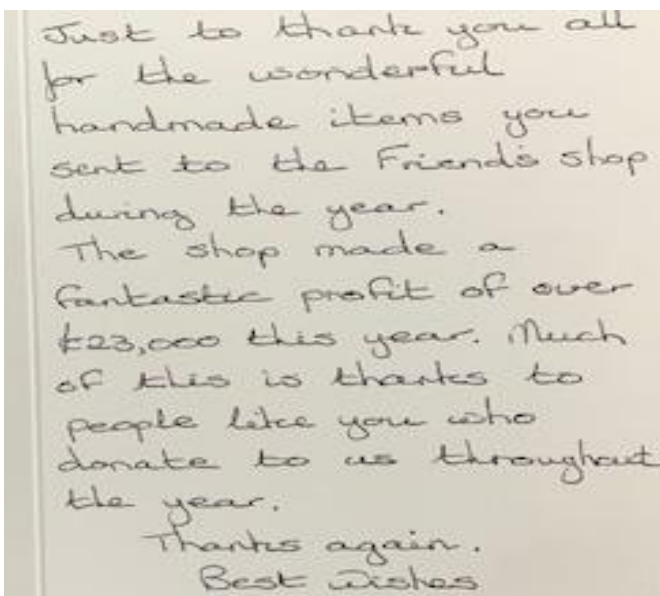 Just to thank you all
for the wonderful
handmade items you
sent to the Friend's shop
during the year.
The shop made a
fantastic profit of over
£23,000 this year. Much
of this is thanks to
people like you who
donate to us throughout
the year.
Thanks again.
Best Wishes